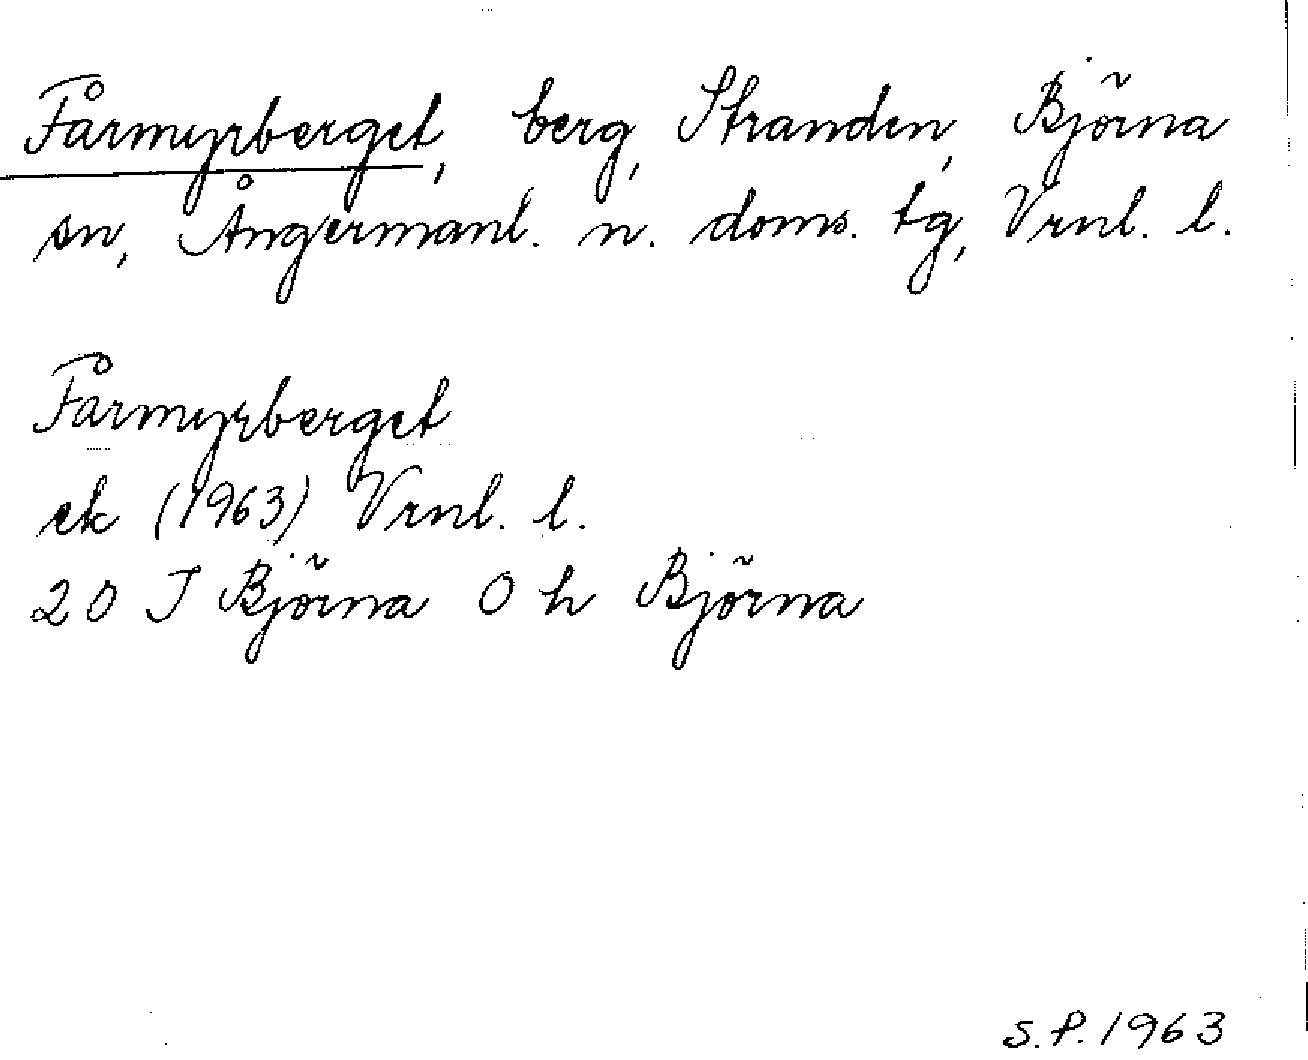 Fårmyrberget, berg, Stranden, Björna
sn, Ångermanl. n. doms. tg, Vrnl. l.
Fårmyrberget
ek (1963) Vrnl. l.
20 J Björna 0 h Björna
S.P. 1963